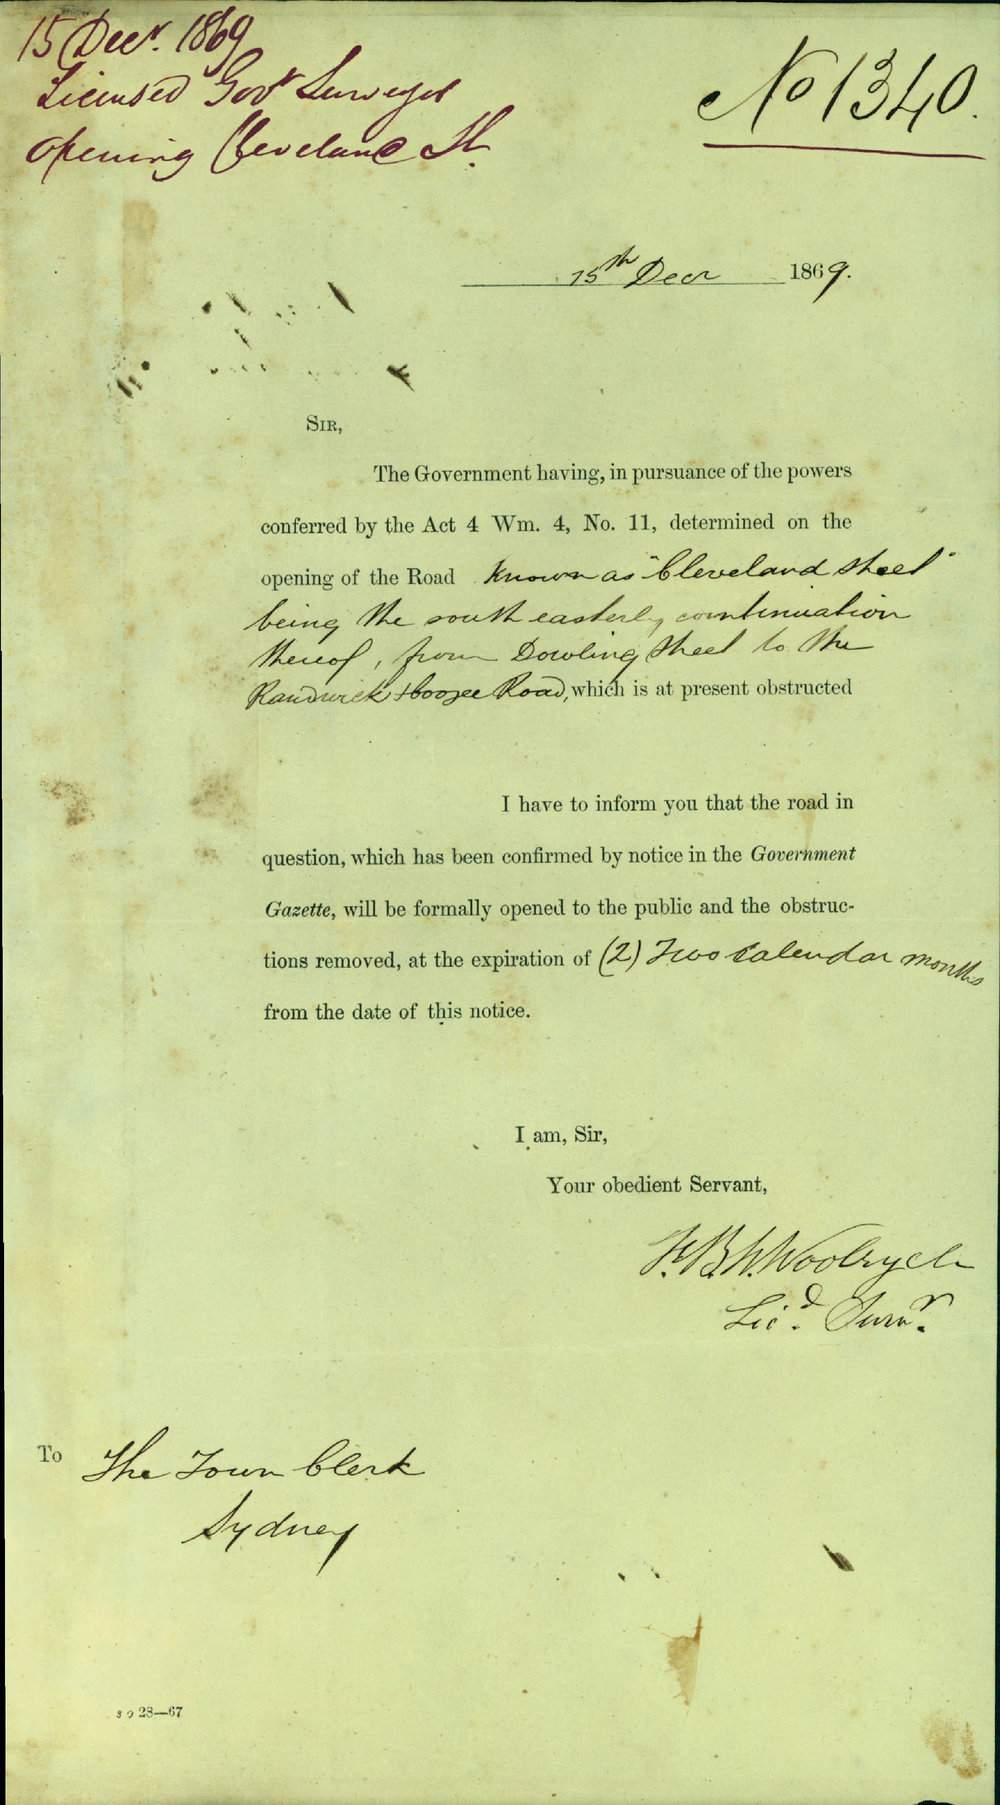 15 Decr. 1869
Licensed Govt Surveyor
opening Cleveland St.
No 1340.
15th Decr 1869.
SIR,
The Government having, in pursuance of the powers
conferred by the Act 4 Wm. 4, No. 11, determined on the
opening of the Road known as "Cleveland street"
being the south easterly continuation
thereof, from Dowling street to the
Randwick & Coogee Road, which is at present obstructed
I have to inform you that the road in
question, which has been confirmed by notice in the Government
Gazette, will be formally opened to the public and the obstruc-
tions removed, at the expiration of (2) Two Calendar months
from the date of this notice.
I am, Sir,
Your obedient Servant,
F.B.W. Woolrych
Licd. Survr.
To The Town Clerk
Sydney
28—67